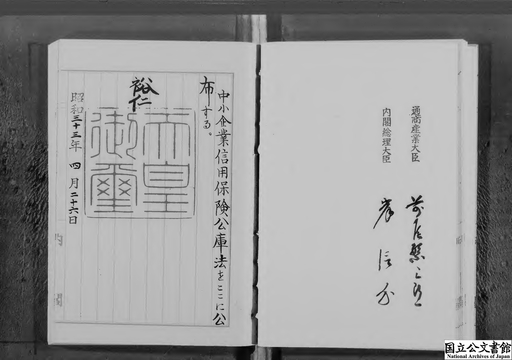 通商産業大臣 前尾繁三郎
内閣総理大臣 岸信介
中小企業信用保険公庫法をここに公
布する。
裕仁
天皇
御璽
昭和三十三年四月二十六日
国立公文書館
National Archives of Japan